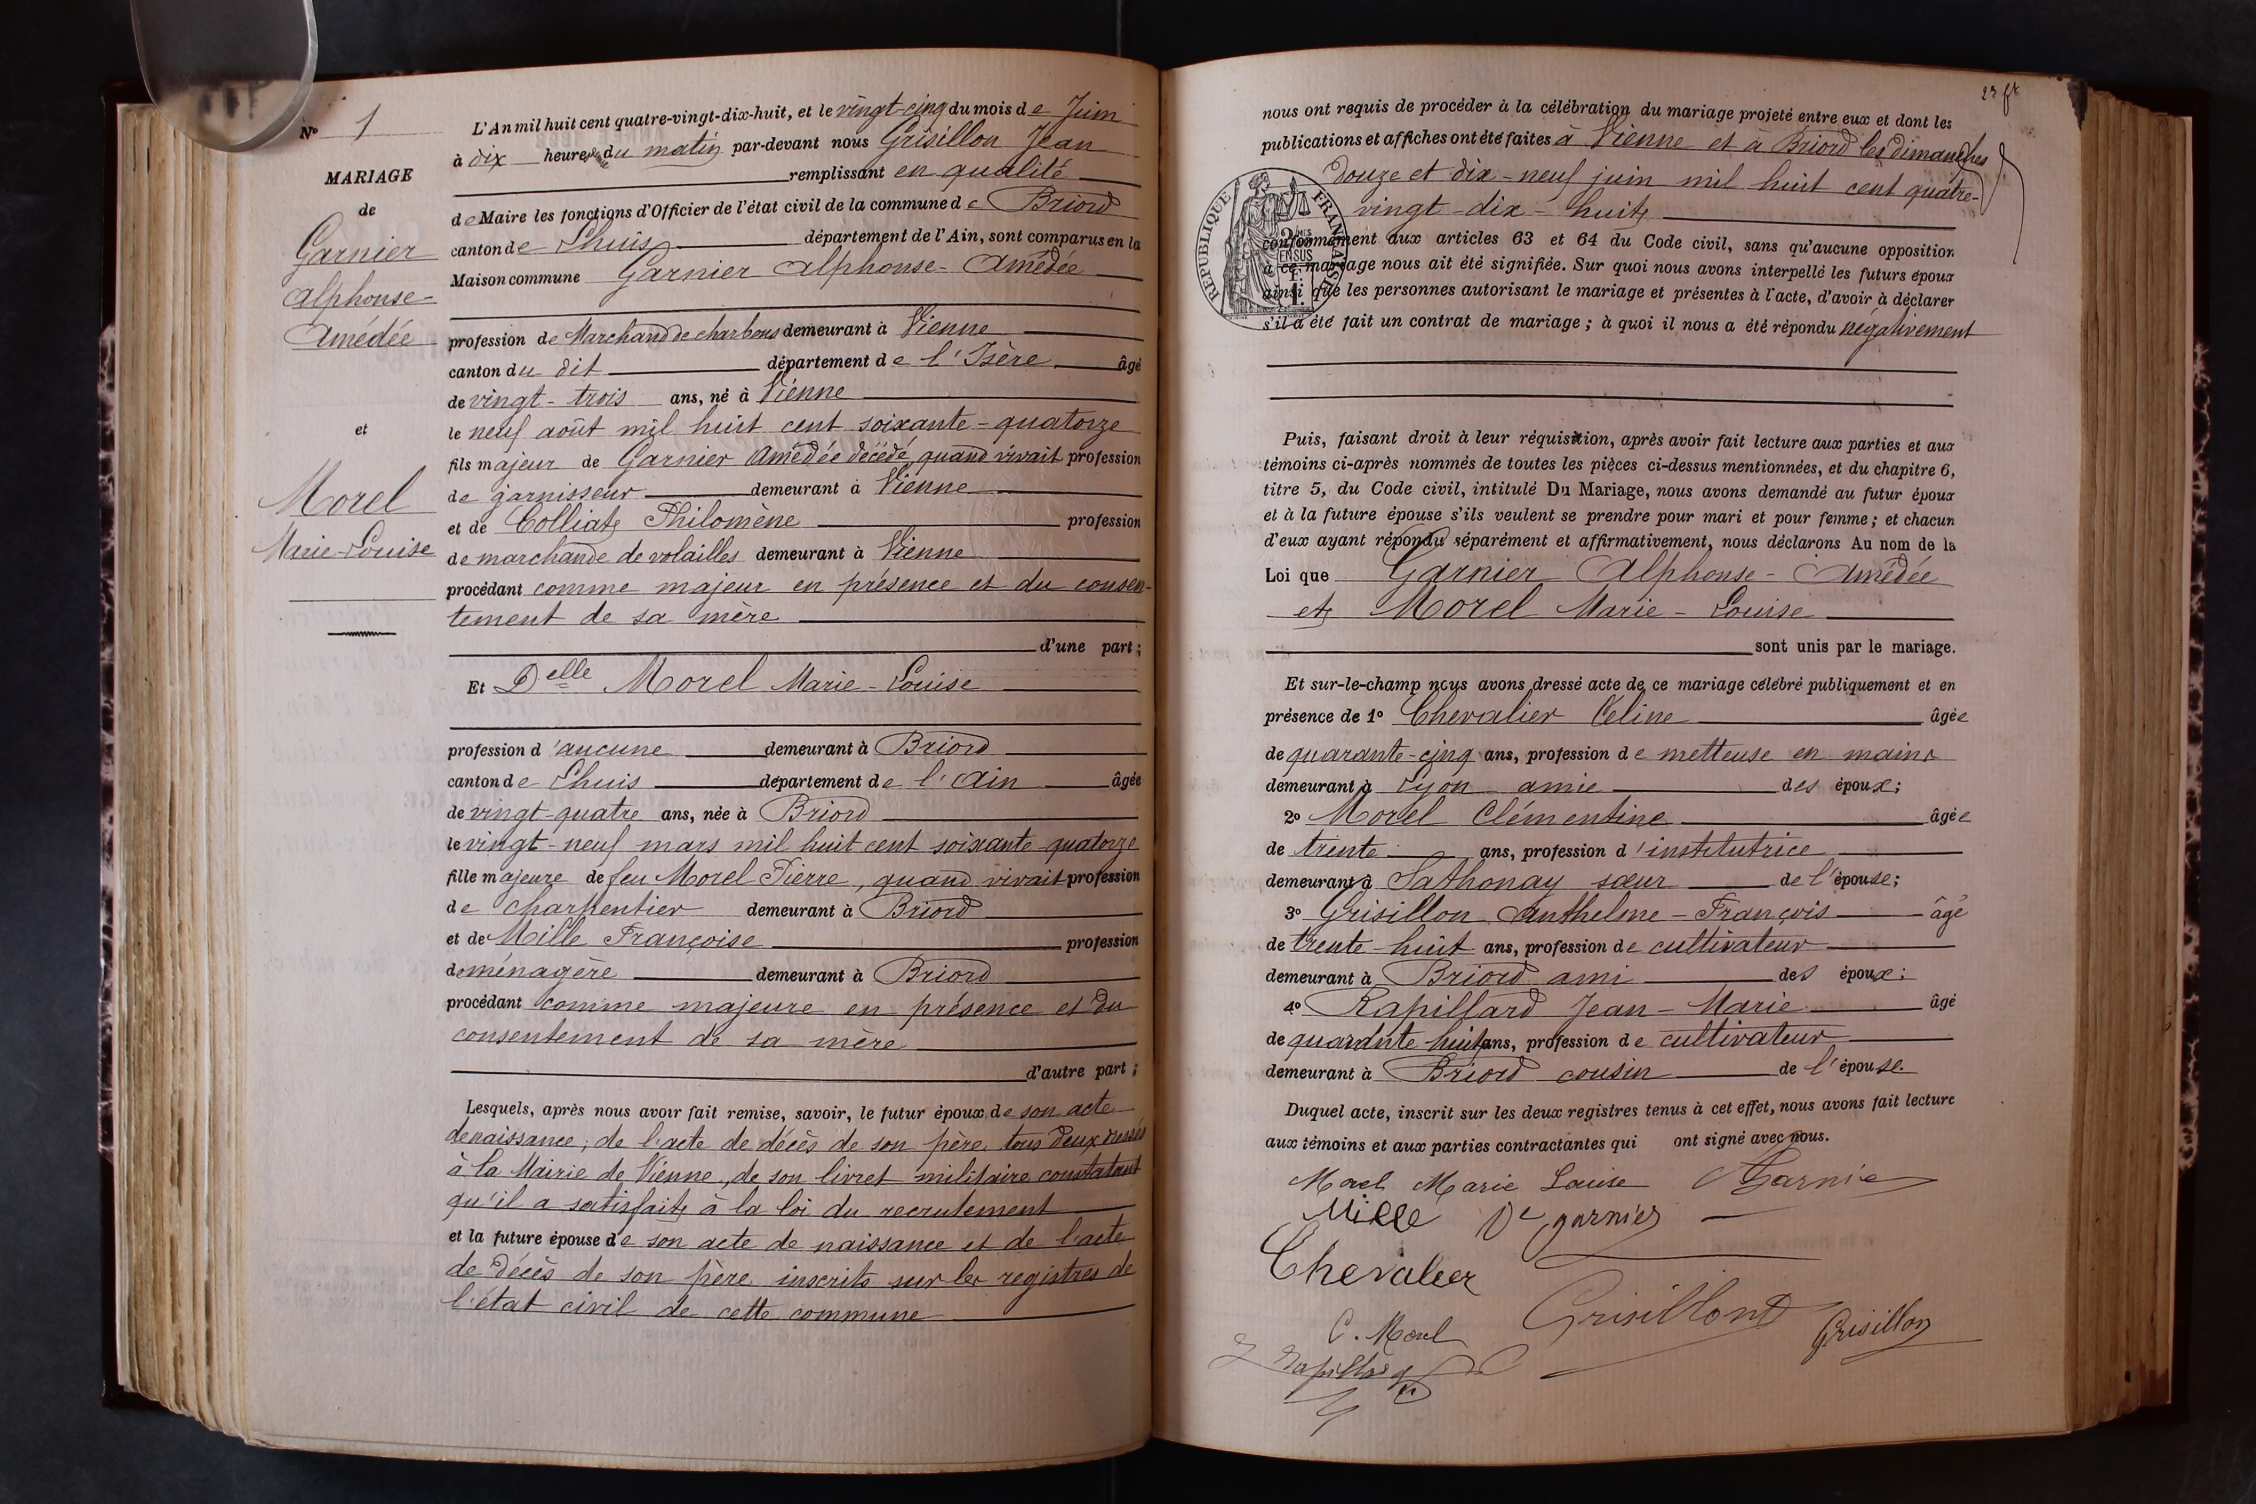 N° 1
MARIAGE
de
Garnier
Alphonse-
Amédée
et
Morel
Marie-Louise
L'An mil huit cent quatre-vingt-dix-huit, et le vingt-cinq du mois de Juin
à dix heures du matin par-devant nous Grisillon Jean
remplissant en qualité
de Maire les fonctions d'Officier de l'état civil de la commune de Briord
canton de Lhuis département de l'Ain, sont comparus en la
Maison commune Garnier Alphonse-Amédée
profession de Marchand de charbons demeurant à Vienne
canton du dit département de l'Isère âgé
de vingt-trois ans, né à Vienne
le neuf août mil huit cent soixante-quatorze
fils majeur de Garnier Amédée décédé, quand vivait profession
de garnisseur demeurant à Vienne
et de Colliat Philomène profession
de marchande de volailles demeurant à Vienne
procédant comme majeur en présence et du consen-
tement de sa mère
d'une part;
Et Delle Morel Marie-Louise
profession d'aucune demeurant à Briord
canton de Lhuis département de l'Ain âgée
de vingt-quatre ans, née à Briord
le vingt-neuf mars mil huit cent soixante-quatorze
fille majeure de feu Morel Pierre, quand vivait profession
de charpentier demeurant à Briord
et de Mille Françoise profession
de ménagère demeurant à Briord
procédant comme majeure en présence et du
consentement de sa mère
d'autre part;
Lesquels, après nous avoir fait remise, savoir, le futur époux de son acte
de naissance; de l'acte de décès de son père, tous deux dressés
à la Mairie de Vienne, de son livret militaire constatant
qu'il a satisfait à la loi du recrutement
et la future épouse de son acte de naissance et de l'acte
de décès de son père inscrits sur les registres de
l'état civil de cette commune
nous ont requis de procéder à la célébration du mariage projeté entre eux et dont les
publications et affiches ont été faites à Vienne et à Briord les dimanches
douze et dix-neuf juin mil huit cent quatre-
vingt-dix-huit
RÉPUBLIQUE FRANÇAISE
conformément aux articles 63 et 64 du Code civil, sans qu'aucune opposition
à ce mariage nous ait été signifiée. Sur quoi nous avons interpellé les futurs époux
ainsi que les personnes autorisant le mariage et présentes à l'acte, d'avoir à déclarer
s'il a été fait un contrat de mariage; à quoi il nous a été répondu négativement
Puis, faisant droit à leur réquisition, après avoir fait lecture aux parties et aux
témoins ci-après nommés de toutes les pièces ci-dessus mentionnées, et du chapitre 6,
titre 5, du Code civil, intitulé Du Mariage, nous avons demandé au futur époux
et à la future épouse s'ils veulent se prendre pour mari et pour femme; et chacun
d'eux ayant répondu séparément et affirmativement, nous déclarons Au nom de la
Loi que Garnier Alphonse-Amédée
et Morel Marie-Louise
sont unis par le mariage.
Et sur-le-champ nous avons dressé acte de ce mariage célébré publiquement et en
présence de 1° Chevalier Céline âgée
de quarante-cinq ans, profession de metteuse en mains
demeurant à Lyon amie des époux;
2° Morel Clémentine âgée
de trente ans, profession d'institutrice
demeurant à Sathonay sœur de l'épouse;
3° Grisillon Anthelme-François âgé
de trente-huit ans, profession de cultivateur
demeurant à Briord ami des époux;
4° Rapillard Jean-Marie âgé
de quarante huit ans, profession de cultivateur
demeurant à Briord cousin de l'épouse.
Duquel acte, inscrit sur les deux registres tenus à cet effet, nous avons fait lecture
aux témoins et aux parties contractantes qui ont signé avec nous.
Morel Marie Louise A Garnier
Mille Ve garnier
Chevalier
Grisillond Grisillon
C. Morel
Rapillard